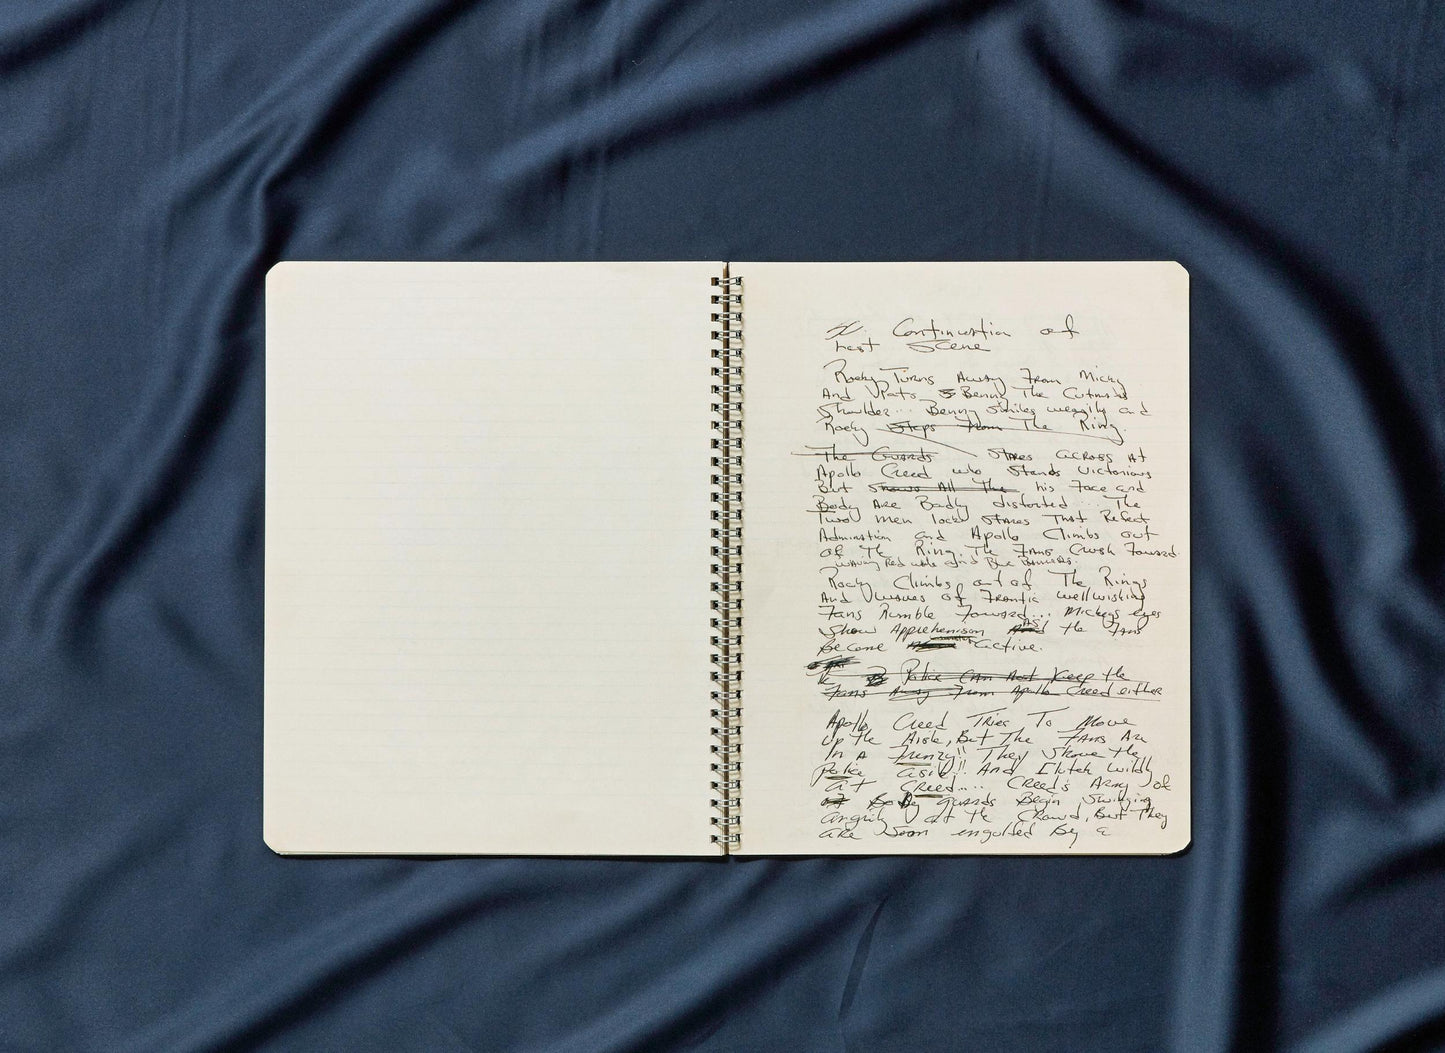 Continuation of
Last Scene
Rocky Turns Away From Micky
And Pats Benny The Cutmans
Shoulder... Benny Smiles wearily and
Rocky Steps From The Ring.
The Guards Stares across at
Apollo Creed who stands victorious
But Shows All The his Face and
Body Are Badly distorted... The
Two men lock stares That Reflect
Admiration and Apollo Climbs out
of The Ring. The Fans Crush Forward
waving Red white and Blue Banners.
Rocky Climbs out of The Rings
And waves of Frantic wellwishing
Fans Rumble Forward... Mickeys eyes
Show Apprehenison As the Fans
Become active.
Police Can Not Keep the
Fans Away From Apollo Creed either
Apollo Creed Tries To Move
Up the Aisle, But The Fans Are
In A Frenzy!! They Shove the
Police aside!! And Clutch wildly
at Creed.... Creed's Army of
Body guards Begin Swinging
angrily at the Crowd, But They
are Soon engulfed By a